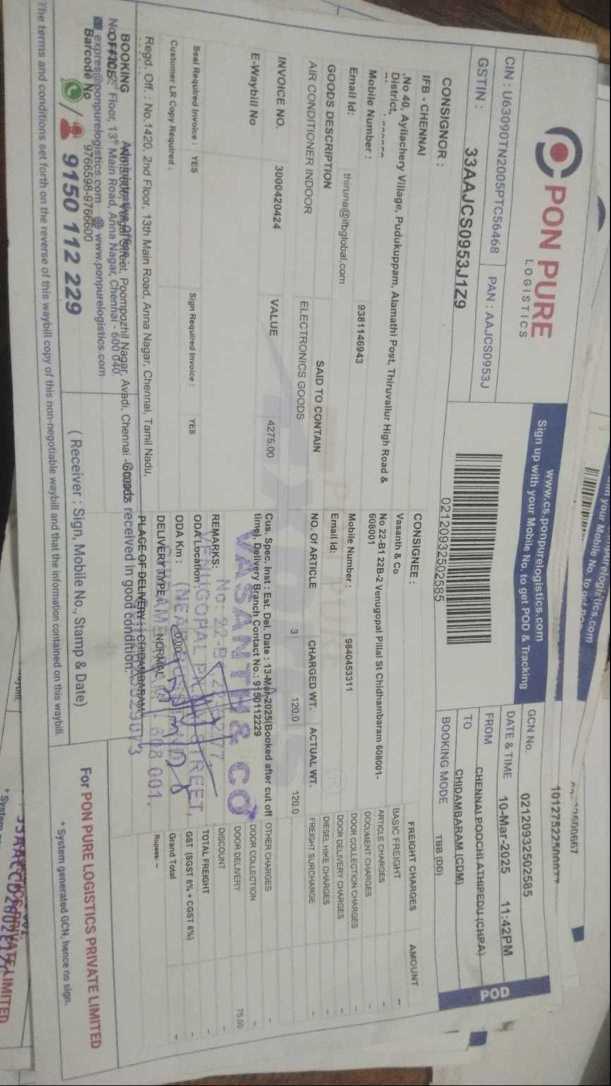 PON PURE
LOGISTICS
www.cs.ponpurelogistics.com
Sign up with your Mobile No. to get POD & Tracking
CIN : U63090TN2005PTC56468
GSTIN : 33AAJCS0953J1Z9
PAN : AAJCS0953J
02120932502585
GCN No. 02120932502585
DATE & TIME 10-Mar-2025 11:42PM
FROM CHENNAI,POOCHI,ATHIPEDU (CHPA)
TO CHIDAMBARAM (CDM)
BOOKING MODE TBB (DD)
POD
CONSIGNOR :
IFB - CHENNAI
No 40, Ayllachery Village, Pudukuppam, Alamathi Post, Thiruvallur High Road &
District,
Mobile Number : 9381146943
Email Id: thiruna@ifbglobal.com
CONSIGNEE :
Vasanth & Co
No 22-B1 22B-2 Venugopal Pillai St Chidhambaram 608001-
608001
Mobile Number : 9840453311
Email Id:
GOODS DESCRIPTION SAID TO CONTAIN NO. OF ARTICLE CHARGED WT. ACTUAL WT.
AIR CONDITIONER INDOOR ELECTRONICS GOODS 3 120.0 120.0
INVOICE NO. 3000420424 VALUE 4275.00
E-Waybill No
Cus. Spec. Inst : Est. Del. Date : 13-Mar-2025(Booked after cut off
time). Delivery Branch Contact No.: 9150112229
REMARKS:
ODA Location :
ODA Km :
DELIVERY TYPE : NORMAL
PLACE OF DELIVERY : CHIDAMBARAM
Goods received in good condition.
Seal Required Invoice : YES Sign Required Invoice : YES
Customer LR Copy Required :
FREIGHT CHARGES AMOUNT
BASIC FREIGHT --
ARTICLE CHARGES --
DOCUMENT CHARGES --
DOOR COLLECTION CHARGES --
DOOR DELIVERY CHARGES --
DIESEL HIKE CHARGES --
FREIGHT SURCHARGE --
OTHER CHARGES --
DOOR COLLECTION --
DOOR DELIVERY 75.00
DISCOUNT --
TOTAL FREIGHT --
GST (SGST 6% + CGST 6%) --
Grand Total --
Rupees: --
VASANTH & CO
Regd. Off. : No.1420, 2nd Floor, 13th Main Road, Anna Nagar, Chennai, Tamil Nadu,
BOOKING
OFFICE
Floor, 13th Main Road, Anna Nagar, Chennai - 600 040
Street, Poompozhil Nagar, Avadi, Chennai
www.ponpurelogistics.com
Barcode No 9766598-9766600
9150 112 229
( Receiver : Sign, Mobile No., Stamp & Date)
For PON PURE LOGISTICS PRIVATE LIMITED
* System generated GCN, hence no sign.
The terms and conditions set forth on the reverse of this waybill copy of this non-negotiable waybill and that the information contained on this waybill